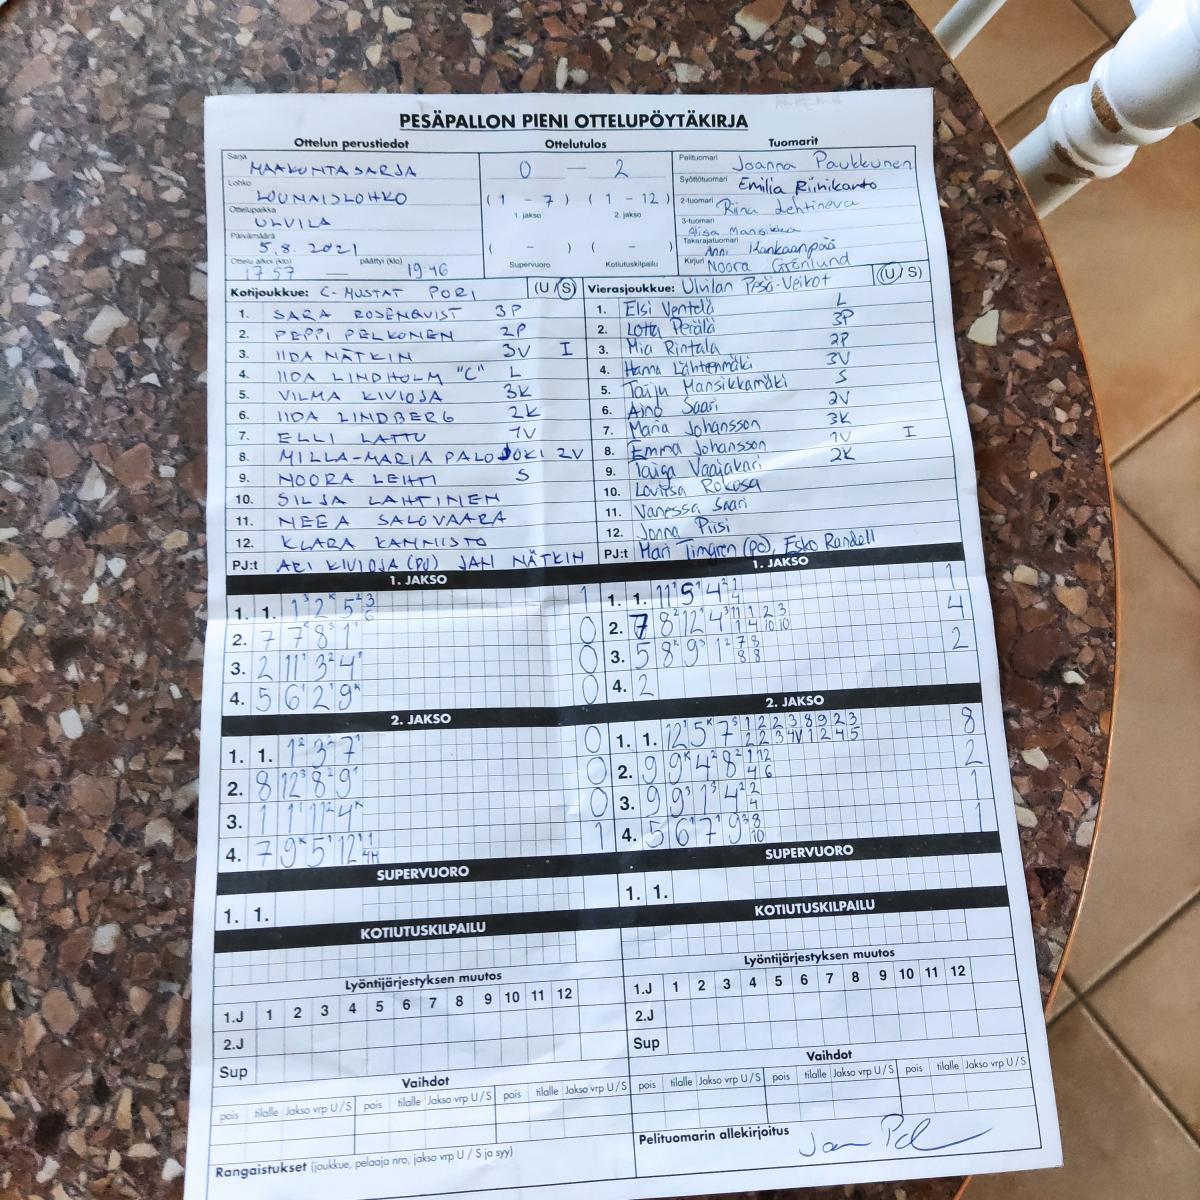 PESÄPALLON PIENI OTTELUPÖYTÄKIRJA
Ottelun perustiedot Ottelutulos Tuomarit
Sarja MAAKUNTASARJA
Lohko LOUNAISLOHKO
Ottelupaikka ULVILA
Päivämäärä 5.8.2021
Ottelu alkoi (klo) 17 57 — päättyi (klo) 19:46
0 — 2
( 1 - 7 ) ( 1 - 12 )
1. jakso 2. jakso
( - ) ( - )
Supervuoro Kotiutuskilpailu
Pelituomari Joanna Paukkunen
Syöttötuomari Emilia Riihikanto
2-tuomari Riina Lehtineva
3-tuomari Alisa Mansikka
Takarajatuomari Anni Kankaanpää
Kirjuri Noora Grönlund
Kotijoukkue: C-MUSTAT PORI (U S)
1. SARA ROSENQVIST 3P
2. PEPPI PELKONEN 2P
3. IIDA NÄTKIN 3V I
4. IIDA LINDHOLM "C" L
5. VILMA KIVIOJA 3K
6. IIDA LINDBERG 2K
7. ELLI LATTU 1V
8. MILLA-MARIA PALOJOKI 2V
9. NOORA LEHTI S
10. SILJA LAHTINEN
11. NEEA SALOVAARA
12. KLARA KAMMISTO
PJ:t ARI KIVIOJA (PU) JAN NÄTKIN
Vierasjoukkue: Ulvilan Pesä-Veikot (U S)
1. Elsi Ventelä L
2. Lotta Perälä 3P
3. Mia Rintala 2P
4. Hanna Lähteenmäki 3V
5. Taiju Mansikkamäki S
6. Aino Saari 2V
7. Maria Johansson 3K
8. Emma Johansson 1V I
9. Taiga Vaajakari 2K
10. Lovisa Rokosa
11. Vanessa Saari
12. Jonna Piisi
PJ:t Mari Timgren (PO), Esko Randell
1. JAKSO
1. 1. 1³ 2ᴷ 5² 3 6 1
2. 7 7ᴷ 8³ 1¹ 0
3. 2 11¹ 3² 4¹ 0
4. 5 6¹ 2¹ 9ᴷ 0
1. JAKSO
1. 1. 11¹ 5¹ 4² 1 4 1
2. 7 8² 12¹ 4³ 11 1 1 4 2 10 3 10 4
3. 5 8ᴷ 9³ 1² 7 8 8 8 2
4. 2
2. JAKSO
1. 1. 1² 3² 7¹ 0
2. 8 12³ 8² 9¹ 0
3. 1 1¹ 11² 4ᴷ 0
4. 7 9ᴷ 5¹ 12¹ 1 4H 1
2. JAKSO
1. 1. 12¹ 5ᴷ 7⁵ 1 2 2 3 8 9 2 3 8
2 2 3 4V 1 2 4 5
2. 9 9ᴷ 4² 8² 1 4 12 6 2
3. 9 9³ 1³ 4² 2 4 1
4. 5 6¹ 7¹ 9³ 8 10 1
SUPERVUORO
1. 1.
SUPERVUORO
1. 1.
KOTIUTUSKILPAILU
KOTIUTUSKILPAILU
Lyöntijärjestyksen muutos
1.J 1 2 3 4 5 6 7 8 9 10 11 12
2.J
Sup
Lyöntijärjestyksen muutos
1.J 1 2 3 4 5 6 7 8 9 10 11 12
2.J
Sup
Vaihdot
pois tilalle Jakso vrp U / S pois tilalle Jakso vrp U / S pois tilalle Jakso vrp U / S
Vaihdot
pois tilalle Jakso vrp U / S pois tilalle Jakso vrp U / S pois tilalle Jakso vrp U / S
Rangaistukset (joukkue, pelaaja nro, jakso vrp U / S ja syy)
Pelituomarin allekirjoitus